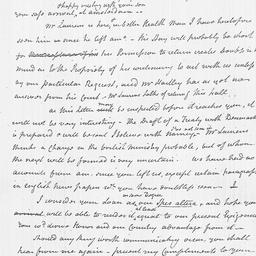 I happy congratulate you on
your safe arrival at Amsterdam —
Mr Laurens is here, in better Health than I have heretofore
seen him in since he left Amca. His Stay will probably be short
for his Permission to return creates doubts in his
mind as to the Propriety of his continuing to act with us unless
by our particular Request, and Mr Hartley has as yet no
answer from his Court. Mr Laurens talks of seeing this Fall.
As this letter may be inspected before it reaches you, it
will not be very interesting — The draft of a Treaty with Denmark
is prepared & will be sent
Mr Laurens
thinks a change in the british ministry probable, but of whom
the next will be formed is very uncertain. We have had no
accounts from Am. since you left us, except certain paragraphs
in english news papers wh. you have doubtless seen —
I consider your loan as our Spes altera, and hope you
will be able to render it equal to our present Exigencies
You will derive Honor and our Country advantage from it —
Should any thing worth communicating occur, you shall
hear from me again — present my compliments to your